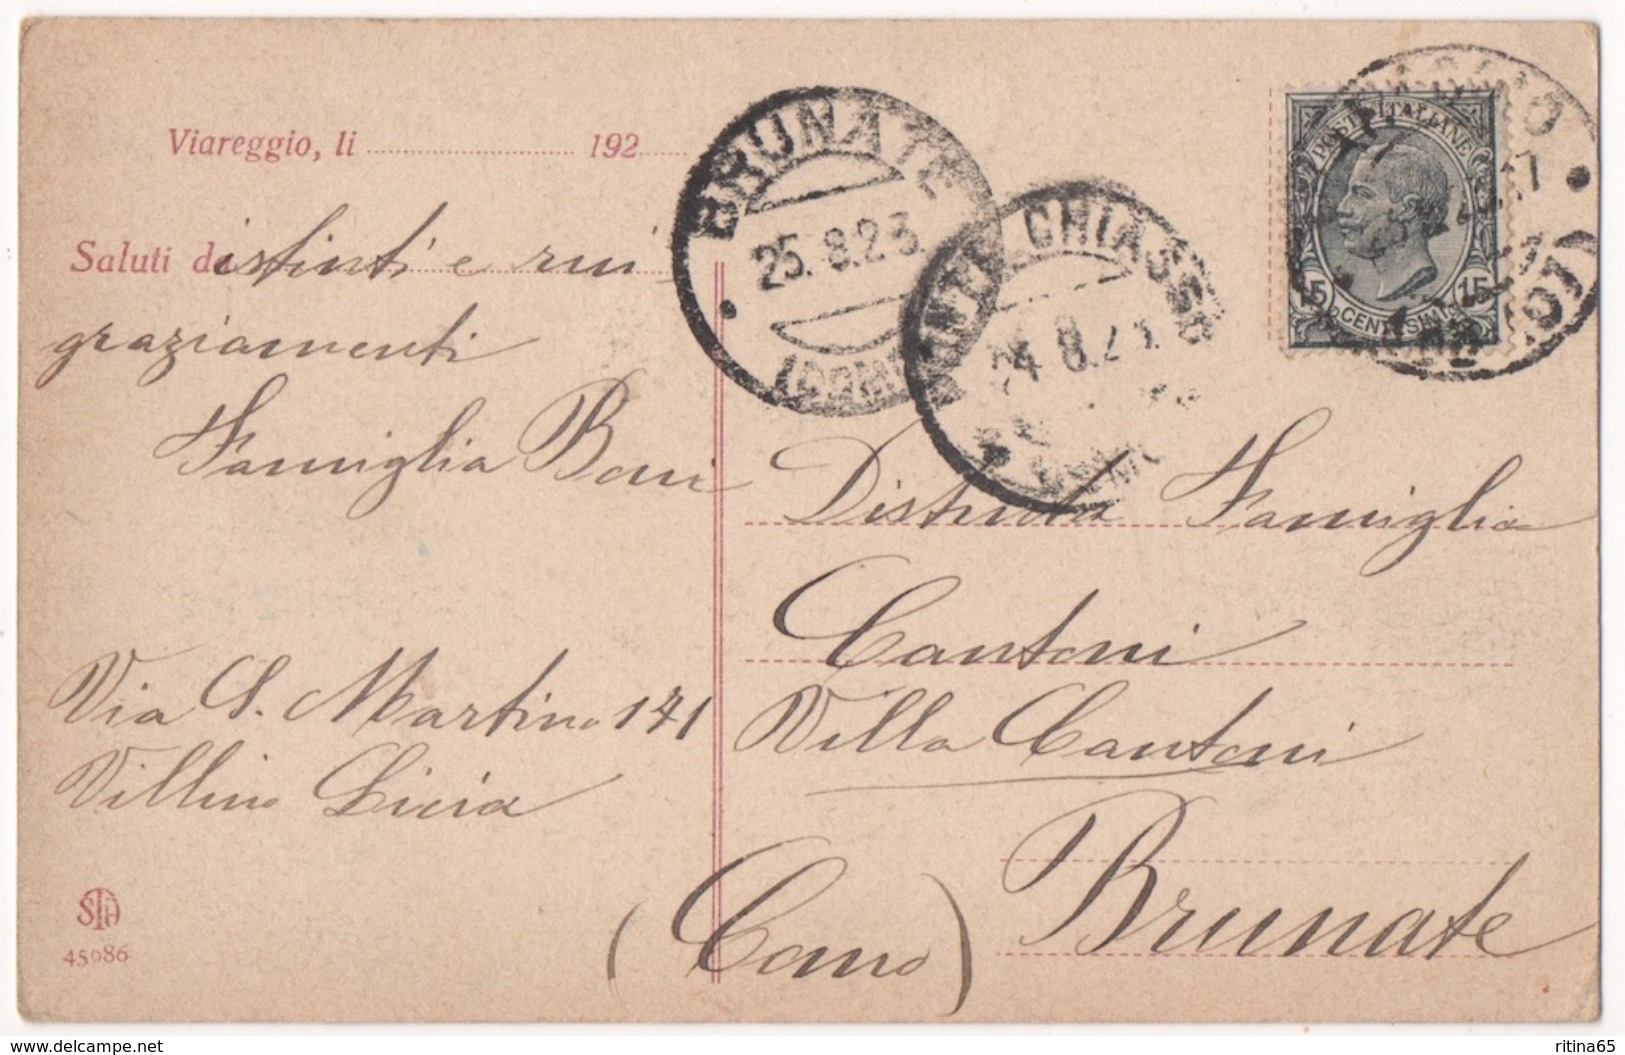 Viareggio, li 192
Saluti distinti e rin
graziamenti
Famiglia Boni
Via S. Martino 171
Villino Licia
STA
45086
BRUNATE
25.8.23
(COMO
PONTE CHIASSO
24.8.23
POSTE ITALIANE
15 15
CENTESIMI
Distinta Famiglia
Cantoni
Villa Cantoni
Brunate
(Como)
delcampe.net
ritina65